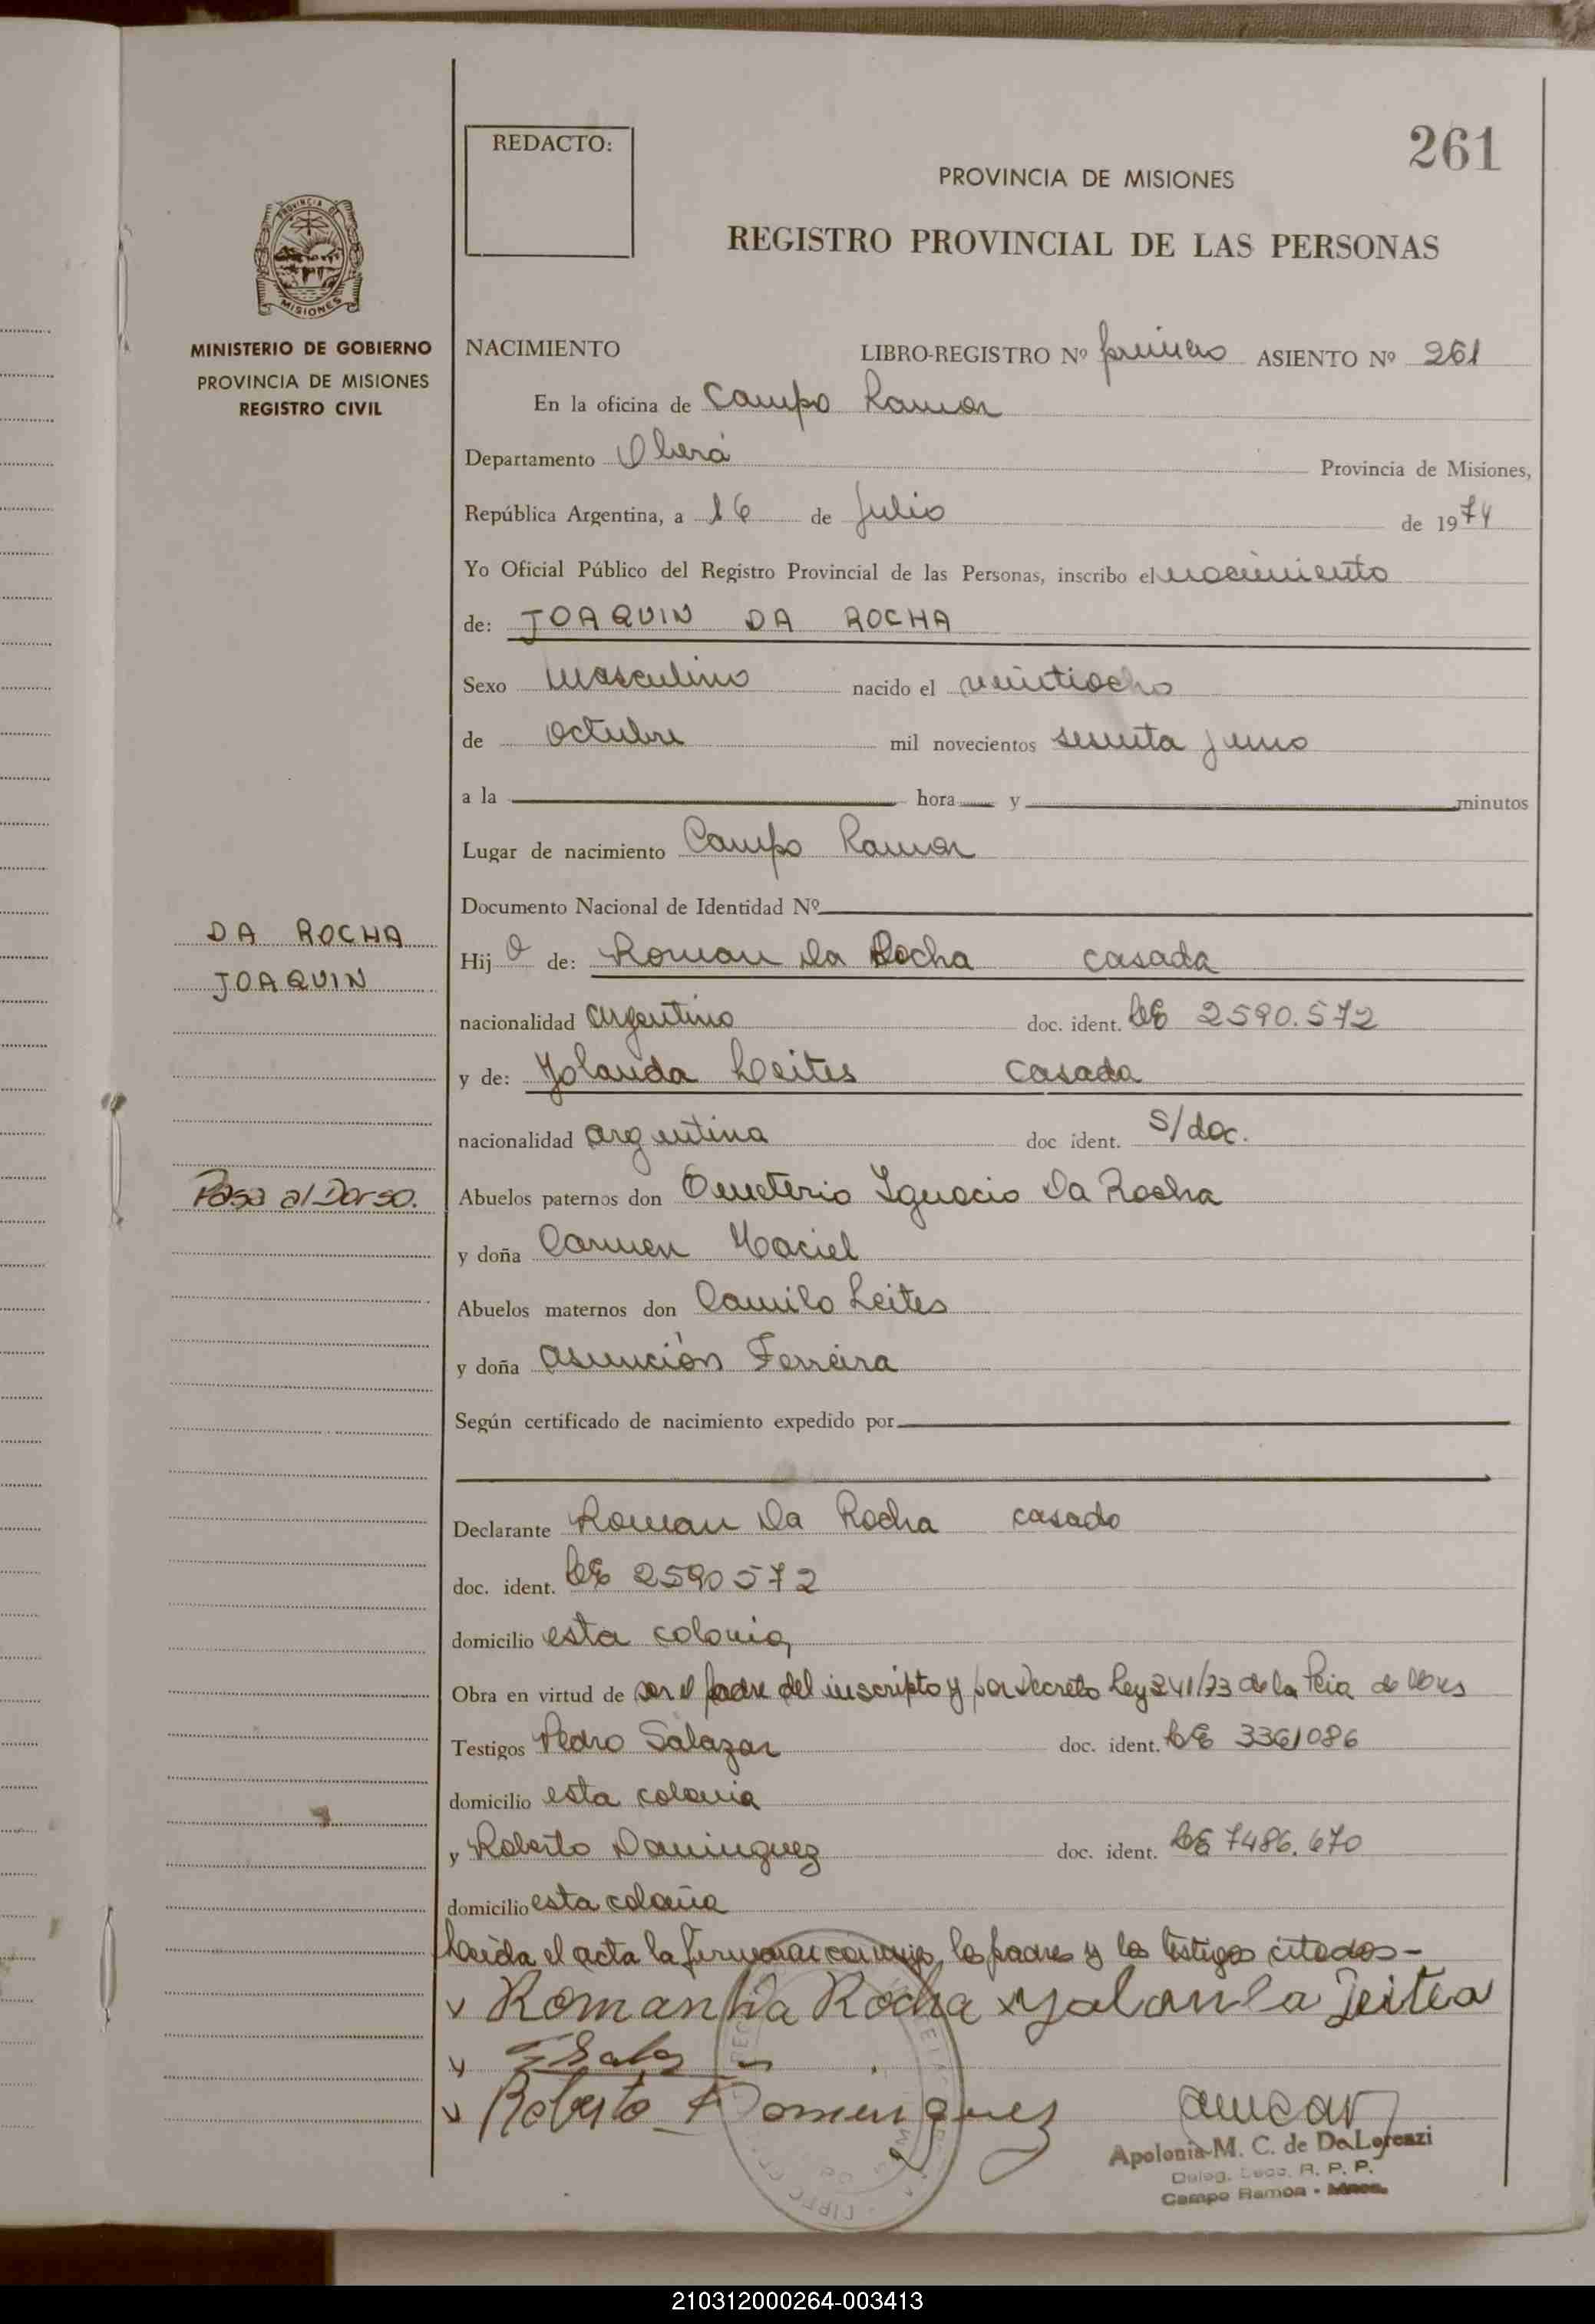 261
REDACTO:
PROVINCIA DE MISIONES
REGISTRO PROVINCIAL DE LAS PERSONAS
PROVINCIA DE
MISIONES
MINISTERIO DE GOBIERNO
PROVINCIA DE MISIONES
REGISTRO CIVIL
NACIMIENTO LIBRO-REGISTRO Nº primero ASIENTO Nº 261
En la oficina de Campo Ramon
Departamento Oberá Provincia de Misiones,
República Argentina, a 16 de Julio de 1974
Yo Oficial Público del Registro Provincial de las Personas, inscribo el nacimiento
de: JOAQUIN DA ROCHA
Sexo masculino nacido el veintiocho
de octubre mil novecientos sesenta y uno
a la hora y minutos
Lugar de nacimiento Campo Ramon
Documento Nacional de Identidad Nº
DA ROCHA
JOAQUIN
Pasa al Dorso.
Hijo de: Roman Da Rocha casada
nacionalidad argentino doc. ident. LE 2590.572
y de: Yolanda Leites casada
nacionalidad argentina doc ident. S/doc.
Abuelos paternos don Emeterio Ignacio Da Rocha
y doña Carmen Maciel
Abuelos maternos don Camilo Leites
y doña Asunción Ferreira
Según certificado de nacimiento expedido por
Declarante Roman Da Rocha casado
doc. ident. LE 2590572
domicilio esta colonia
Obra en virtud de ser el padre del inscripto y por Decreto Ley 241/73 de la Pcia de
Testigos Pedro Salazar doc. ident. LE 3361086
domicilio esta colonia
y Roberto Dominguez doc. ident. LE 7486.670
domicilio esta colonia
Leida el acta la firman conmigo, los padres y los testigos citados-
Roman Da Rocha yolanla Leites
Roberto Dominguez
Apolonia M. C. de De Lorenzi
Deleg. R. P. P.
Campo Ramon - Mnes.
210312000264-003413